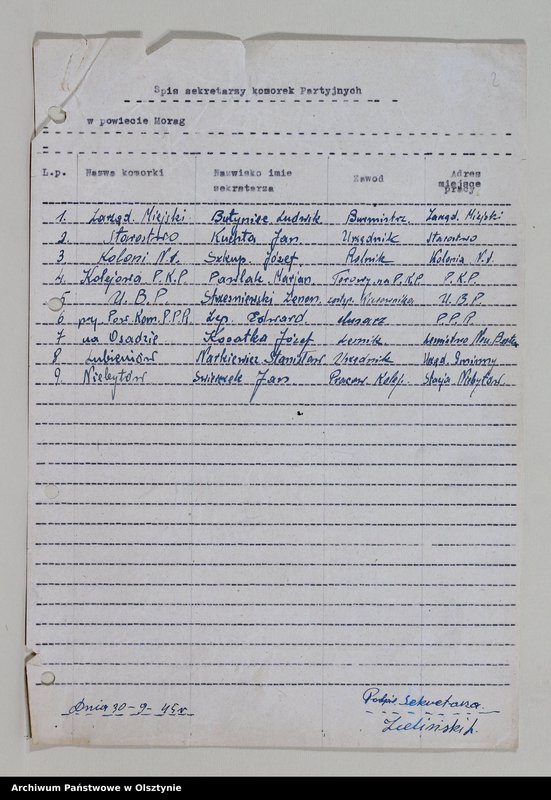 2
Spis sekretarzy komorek Partyjnych
w powiecie Morag
L.p. Nazwa komorki Nazwisko imie sekretarza Zawod Adres miejsce pracy
1. Zarząd. Miejski Ludwik Burmistrz Zarząd. Miejski
2 Starostwo Kuchta Jan Urzędnik Starostwo
3 Koloni N.1. Józef Rolnik Kolonia N.1.
4. Kolejowa P.K.P. Pawlak Marian Torowy na P.K.P. P.K.P.
5 U.B.P. Zenon U.B.P.
6 przy Pow. Kom. P.P.R. Edward P.P.R.
7 na Osadzie Józef Leśnik
8 Narkiewicz Stanisław Urzędnik Urząd. Gminny
9. Niebytów Jan Pracow. Kolej. Stacja Niebytów
Dnia 30-9-45 r.
Podpis Sekretarza
Zieliński
Archiwum Państwowe w Olsztynie